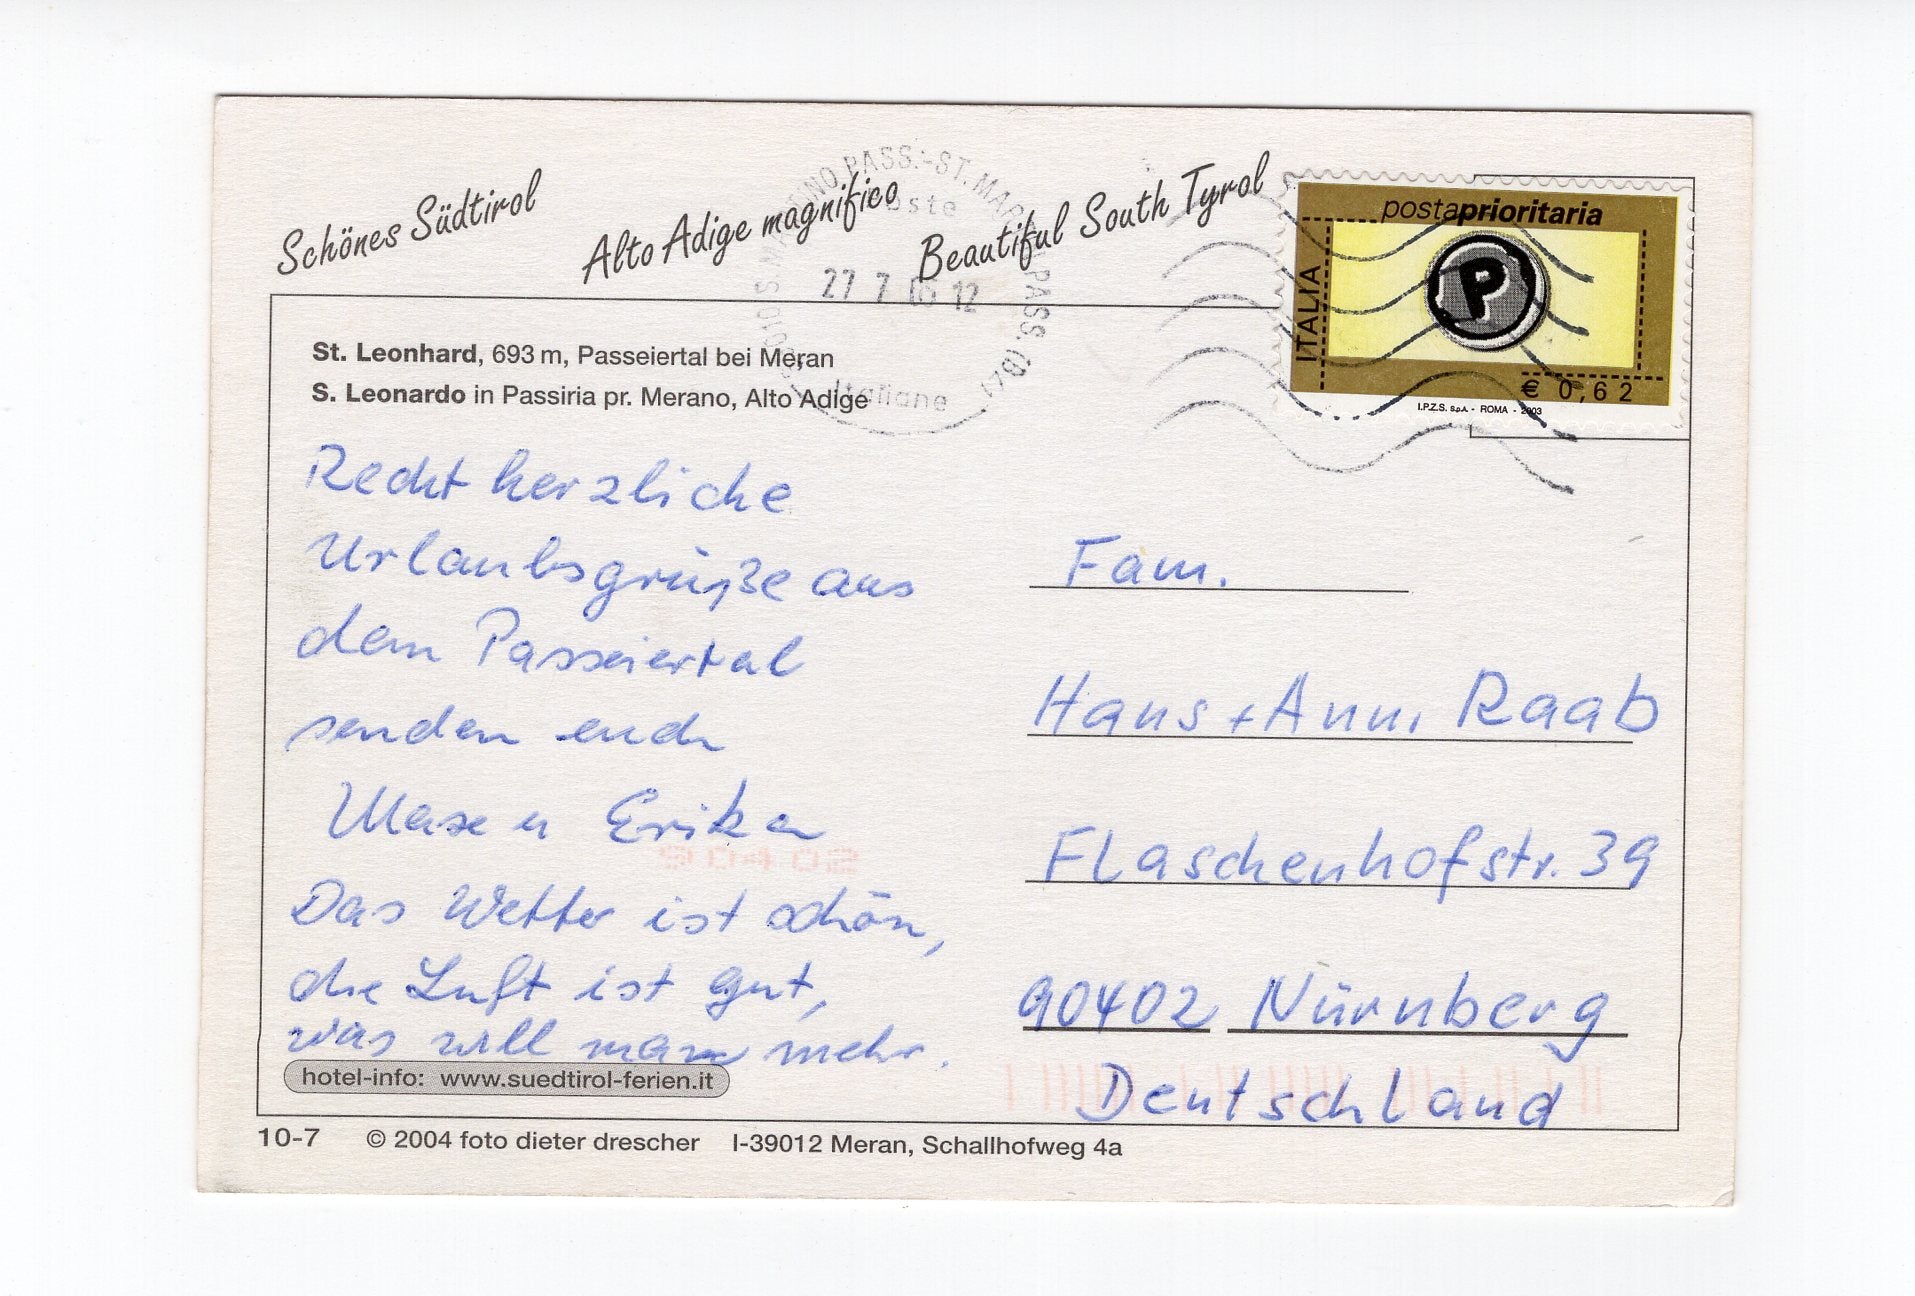 Schönes Südtirol
Alto Adige magnifico
Beautiful South Tyrol
27 7 12
Italiane
postaprioritaria
P
ITALIA
€ 0,62
I.P.Z.S. S.p.A. - ROMA - 2003
St. Leonhard, 693 m, Passeiertal bei Meran
S. Leonardo in Passiria pr. Merano, Alto Adige
Recht herzliche
Urlaubsgrüße aus
dem Passeiertal
senden euch
Maxe u Erika
Das Wetter ist schön,
die Luft ist gut,
was will man mehr.
Fam.
Hans + Anni Raab
Flaschenhofstr. 39
90402 Nürnberg
Deutschland
90402
hotel-info: www.suedtirol-ferien.it
10-7 © 2004 foto dieter drescher I-39012 Meran, Schallhofweg 4a